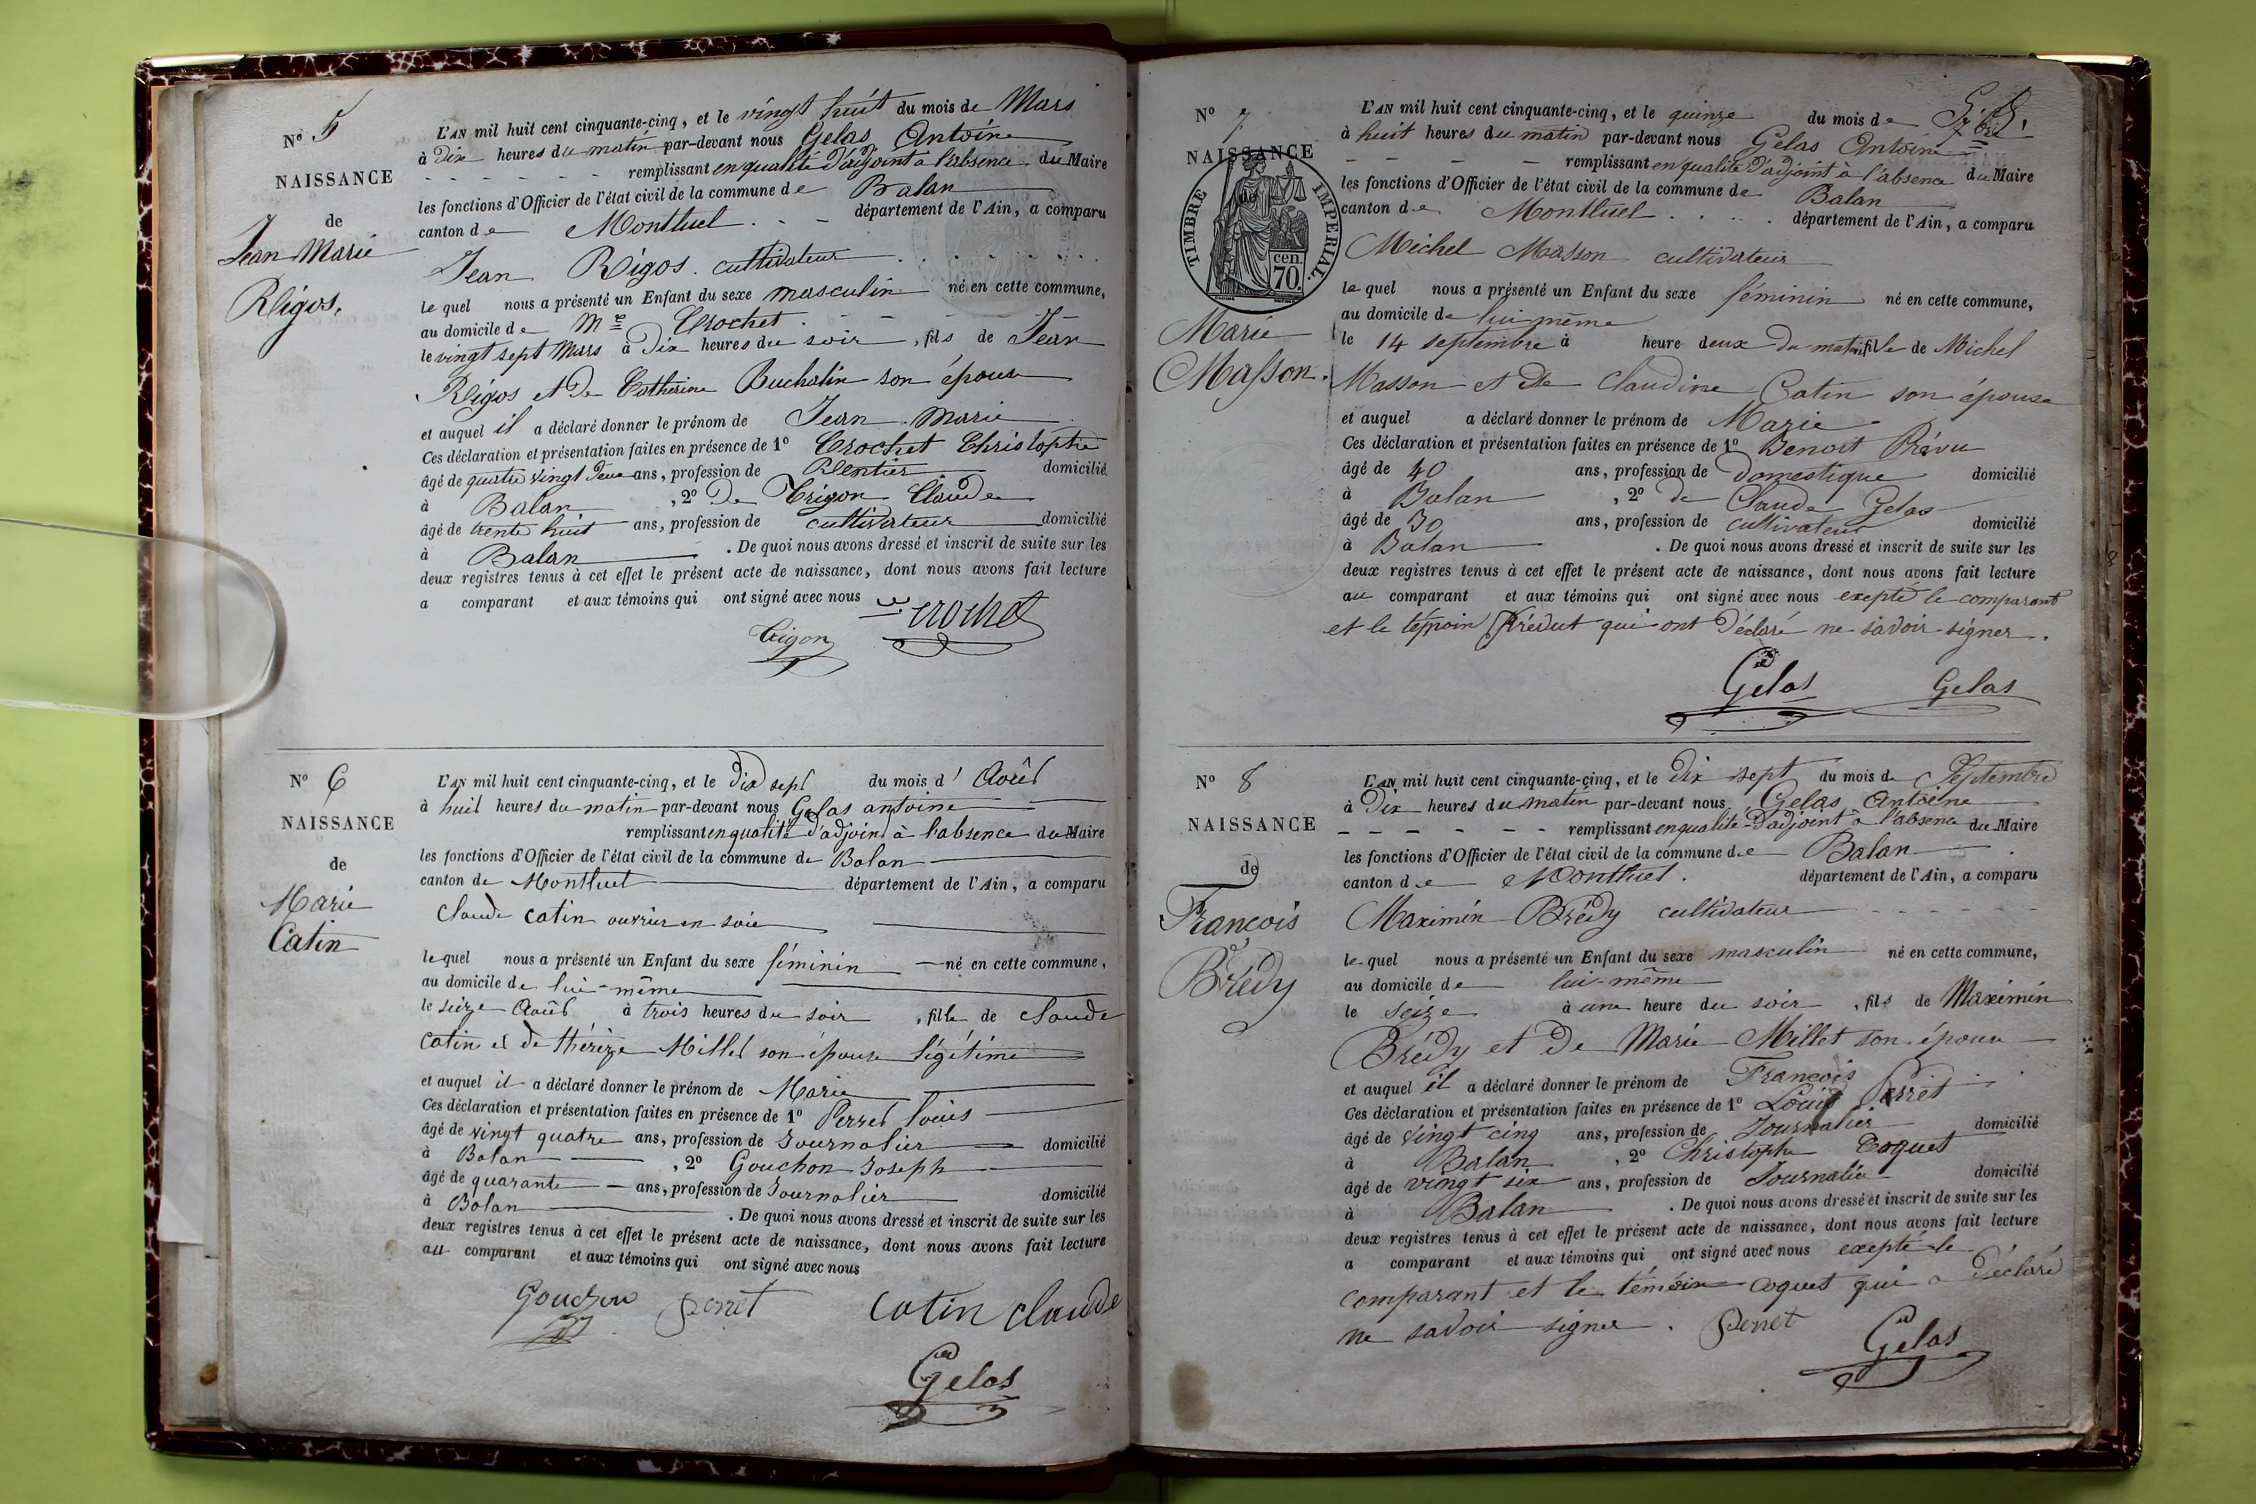 N° 5
NAISSANCE
de
Jean Marie
Rigos.
L'AN mil huit cent cinquante-cinq, et le vingt huit du mois de Mars
à Dix heures du matin par-devant nous Gelas Antoine
remplissant en qualité d'adjoint à l'absence du Maire
les fonctions d'Officier de l'état civil de la commune de Balan
canton de Montluel département de l'Ain, a comparu
Jean Rigos cultivateur
le quel nous a présenté un Enfant du sexe masculin né en cette commune,
au domicile de Mr Crochet
le vingt sept Mars à Dix heures du soir, fils de Jean
Rigos et de Catherine Buchalin son épouse
et auquel il a déclaré donner le prénom de Jean Marie
Ces déclaration et présentation faites en présence de 1° Crochet Christophe
âgé de quatre vingt deux ans, profession de Rentier domicilié
à Balan, 2° De Trigon Claude
âgé de trente huit ans, profession de cultivateur domicilié
à Balan. De quoi nous avons dressé et inscrit de suite sur les
deux registres tenus à cet effet le présent acte de naissance, dont nous avons fait lecture
a comparant et aux témoins qui ont signé avec nous
Crochet
Trigon
N° 6
NAISSANCE
de
Marie
Catin
L'AN mil huit cent cinquante-cinq, et le Dix sept du mois d' Août
à huit heures du matin par-devant nous Gelas antoine
remplissant en qualité d'adjoint à l'absence du Maire
les fonctions d'Officier de l'état civil de la commune de Balan
canton de Montluel département de l'Ain, a comparu
Claude Catin ouvrier en soie
le quel nous a présenté un Enfant du sexe féminin né en cette commune,
au domicile de lui-même
le seize Août à trois heures du soir, fille de Claude
Catin et de thérèze Millet son épouse légitime
et auquel il a déclaré donner le prénom de Marie
Ces déclaration et présentation faites en présence de 1° Perret louis
âgé de vingt quatre ans, profession de Journalier domicilié
à Balan, 2° Gouchon Joseph
âgé de quarante ans, profession de Journalier domicilié
à Balan. De quoi nous avons dressé et inscrit de suite sur les
deux registres tenus à cet effet le présent acte de naissance, dont nous avons fait lecture
au comparant et aux témoins qui ont signé avec nous
Gouchon Perret Catin Claude
Gelas
N° 7
NAISSANCE
de
TIMBRE IMPERIAL.
cen. 70.
Marie
Masson.
L'AN mil huit cent cinquante-cinq, et le quinze du mois de 7bre
à huit heures du matin par-devant nous Gelas Antoine
remplissant en qualité d'adjoint à l'absence du Maire
les fonctions d'Officier de l'état civil de la commune de Balan
canton de Montluel département de l'Ain, a comparu
Michel Masson cultivateur
le quel nous a présenté un Enfant du sexe féminin né en cette commune,
au domicile de lui-même
le 14 septembre à heure deux du matin fille de Michel
Masson et De Claudine Catin son épouse
et auquel a déclaré donner le prénom de Marie
Ces déclaration et présentation faites en présence de 1° Benoit Prévu
âgé de 40 ans, profession de Domestique domicilié
à Balan, 2° de Claude Gelas
âgé de 30 ans, profession de cultivateur domicilié
à Balan. De quoi nous avons dressé et inscrit de suite sur les
deux registres tenus à cet effet le présent acte de naissance, dont nous avons fait lecture
au comparant et aux témoins qui ont signé avec nous exepté le comparant
et le témoin qui ont Déclaré ne savoir signer.
Gelas Gelas
N° 8
NAISSANCE
de
François
Brédy
L'AN mil huit cent cinquante-cinq, et le Dix sept du mois de Septembre
à Dix heures du matin par-devant nous Gelas Antoine
remplissant en qualité D'adjoint à l'absence du Maire
les fonctions d'Officier de l'état civil de la commune de Balan
canton de Montluel. département de l'Ain, a comparu
Maximin Brédy cultivateur
le quel nous a présenté un Enfant du sexe masculin né en cette commune,
au domicile de lui-même
le seize à une heure du soir, fils de Maximin
Brédy et De Marie Millet son épouse
et auquel il a déclaré donner le prénom de François
Ces déclaration et présentation faites en présence de 1° Louis Perret
âgé de vingt cinq ans, profession de Journalier domicilié
à Balan, 2° Christophe Coquet
âgé de vingt six ans, profession de Journalier domicilié
à Balan. De quoi nous avons dressé et inscrit de suite sur les
deux registres tenus à cet effet le présent acte de naissance, dont nous avons fait lecture
a comparant et aux témoins qui ont signé avec nous exepté le
comparant et le témoin Coquet qui a Déclaré
ne savoir signer. Perret
Gelas